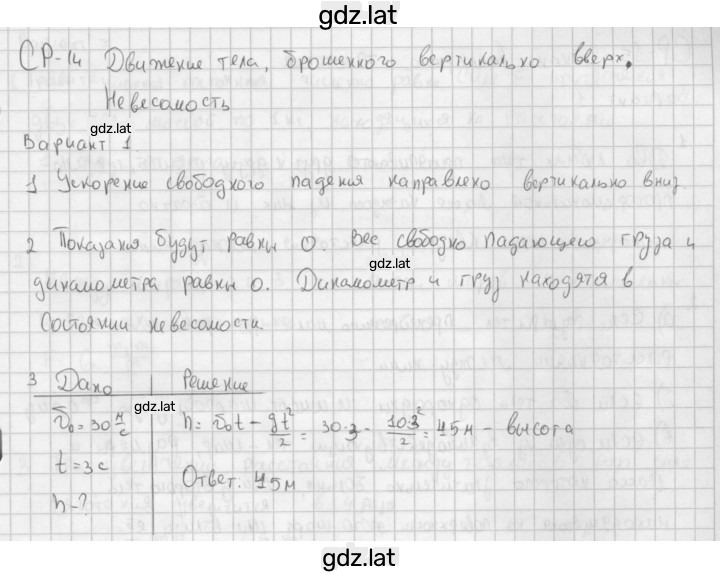 gdz.lat
СР-14 Движение тела, брошенного вертикально вверх.
Невесомость
gdz.lat
Вариант 1.
1 Ускорение свободного падения направлено вертикально вниз.
gdz.lat
2 Показания будут равны 0. Вес свободно падающего груза и
динамометра равны 0. Динамометр и груз находятся в
gdz.lat
состоянии невесомости.
3 Дано Решение
gdz.lat
v₀ = 30 м/с h = v₀t - gt²/2 = 30·3 - 10·3²/2 = 45м - высота
t = 3 с Ответ: 45м
h - ?
gdz.lat